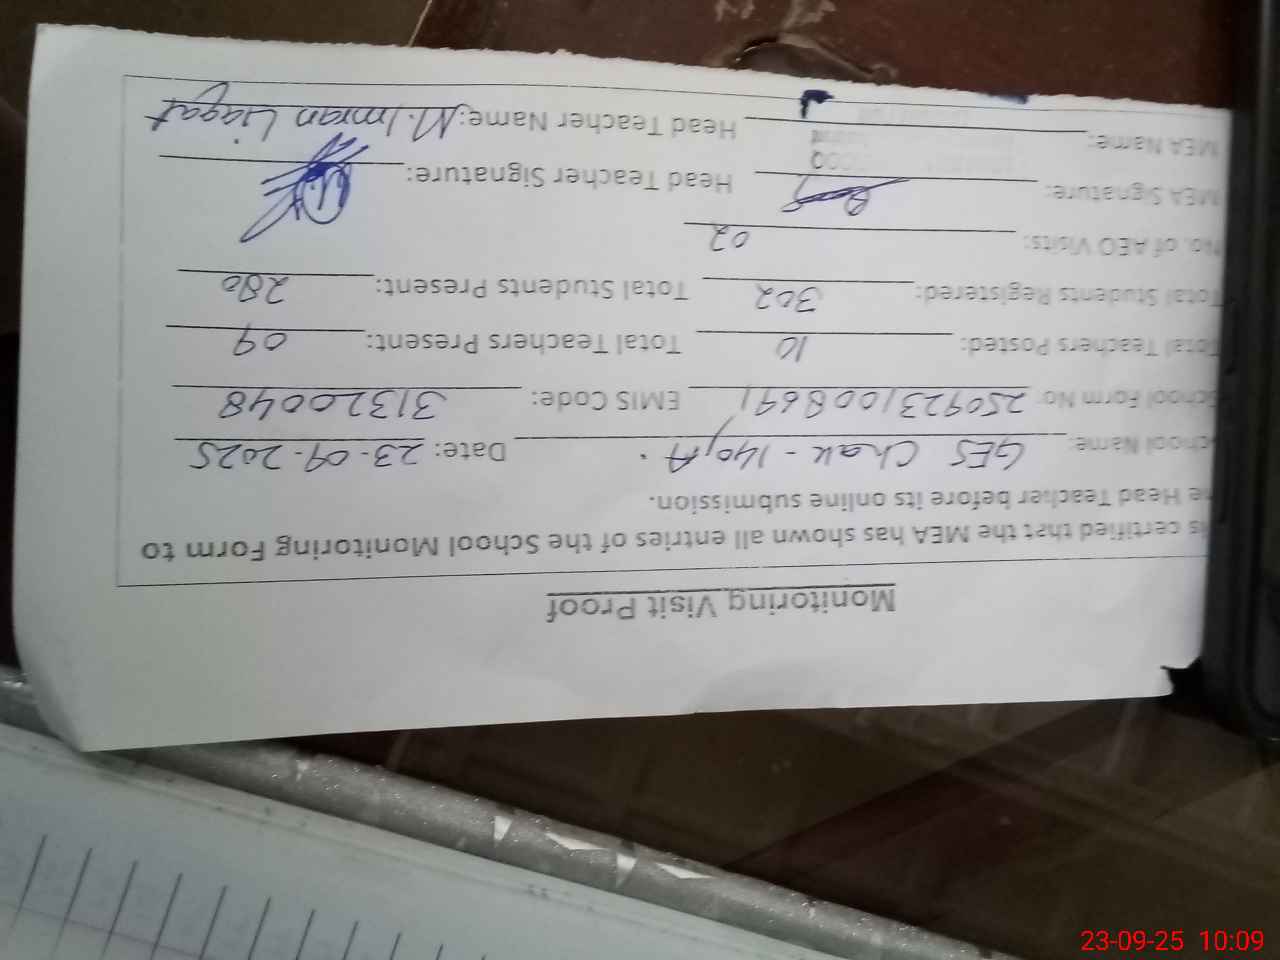 Monitoring Visit Proof
is certified that the MEA has shown all entries of the School Monitoring Form to
he Head Teacher before its online submission.
School Name: GES Chak - 140/A. Date: 23-09-2025
School Form No: 2509231008691 EMIS Code: 31320048
Total Teachers Posted: 10 Total Teachers Present: 09
Total Students Registered: 302 Total Students Present: 280
No. of AEO Visits: 02
MEA Signature: Head Teacher Signature:
MEA Name: Head Teacher Name: M. Imran Liaqat
23-09-25 10:09